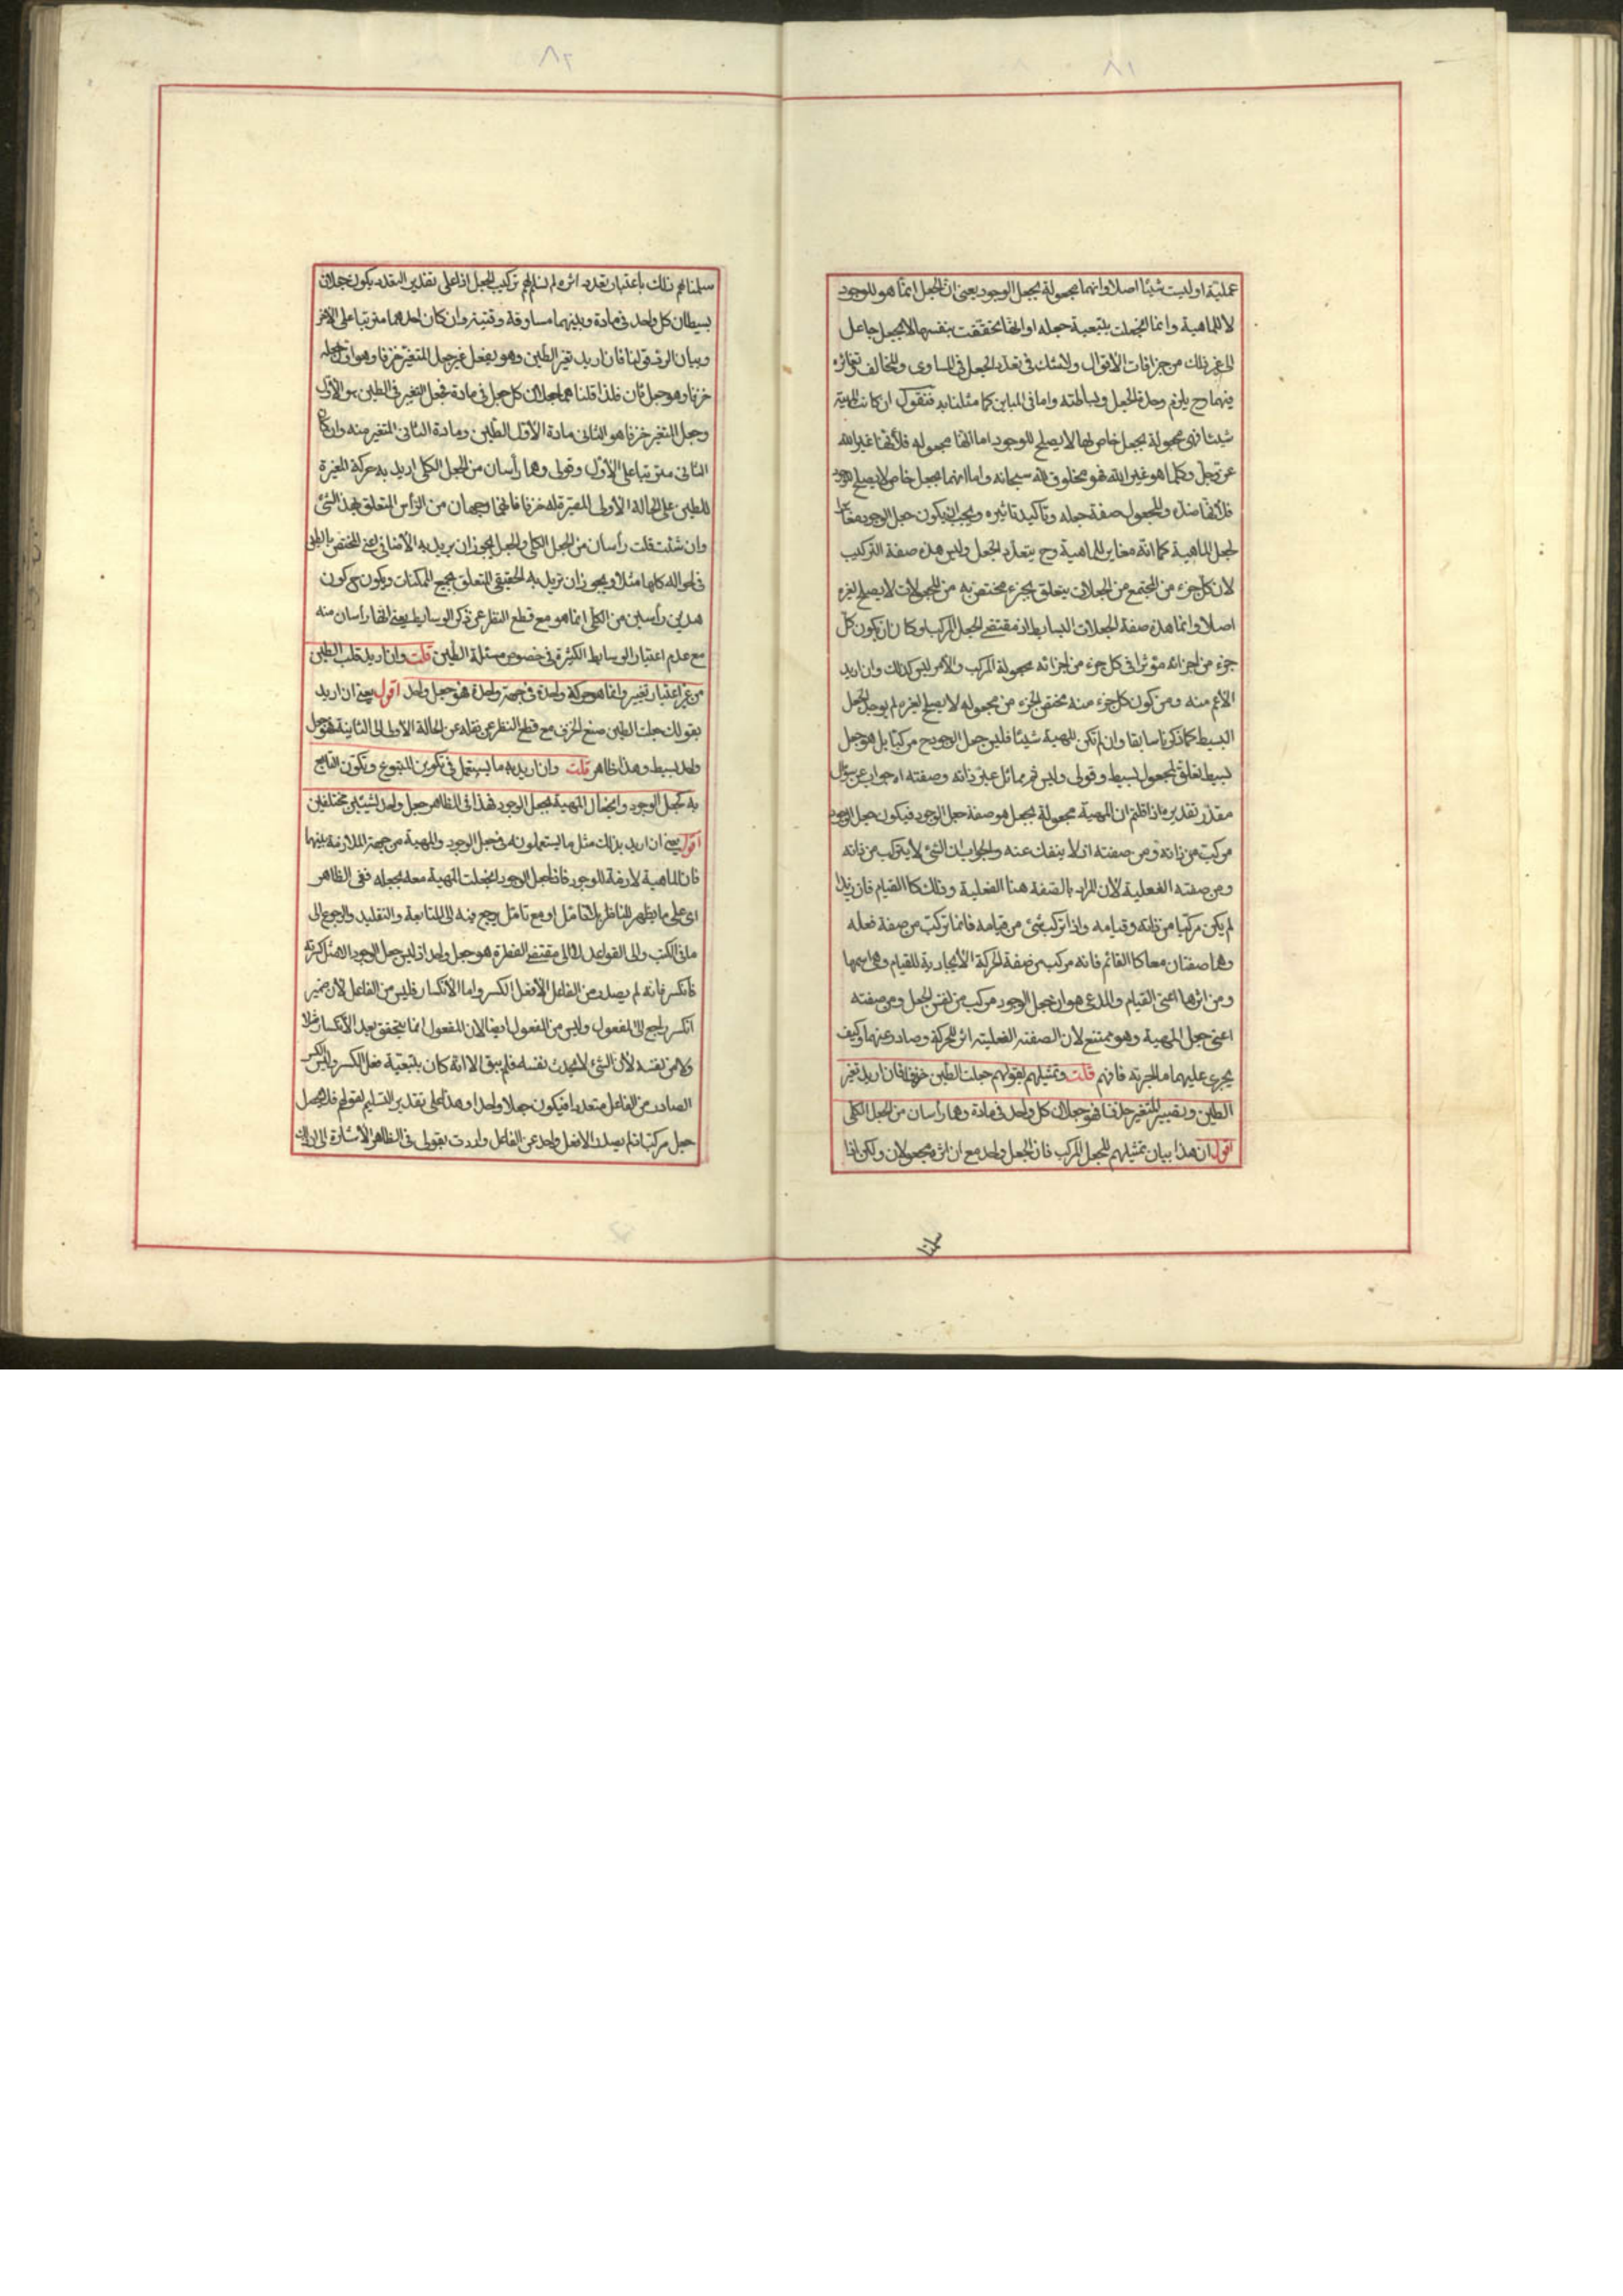 ٨١
عملية او ليست شيئا اصلا وانها مجعولة بجعل الوجود يعنى ان الجعل انما هو للوجود
لا للماهية وانما انجعلت بتبعية جعله او انها تحققت بنفسها لا بجعل جاعل
الى غير ذلك من جزافات الأقوال ولا شك فى تعدد الجعل فى المساوى والمخالف
فيهما وح يلزم وحدة الجعل وبساطته واما فى المباين كما مثلنا به فنقول ان كانت المهية
شيئا فهى مجعولة بجعل خاص لها لا يصلح للوجود اما انها مجعوله فلأنها غير الله
عز وجل وكلما هو غير الله فهو مخلوق لله سبحانه واما انها بجعل خاص لا يصلح للوجود
فلأنها ضده والمجعول صفة جعله وتأكيد تاثيره ويجب ان يكون جعل الوجود مغايرا
لجعل الماهية كما انه مغاير للماهية وح يتعدد الجعل وليس هذه صفة التركيب
لان كل جزء من المجتمع من الجعلات يتعلق بجزء مختص به من المجعولات لا يصلح لغيره
اصلا وانما هذه صفة الجعلات البسايط اذ مقتضى الجعل المركب لو كان ان يكون كل
جزء من اجزائه مؤثرا فى كل جزء من اجزائه مجعولة المركب والأمر ليس كذلك وان اريد
الأعم منه ومن كون كل جزء منه مختص لجزء من مجعوله لا يصلح لغيره لم يوجد الجعل
البسيط كما ذكرنا سابقا وان لم تكن المهية شيئا فليس جعل الوجود ح مركبا بل هو جعل
بسيط تعلق بمجعول بسيط وقولى وليس ثم بمماثل عين ذاته وصفته اه جواب عن سؤال
مقدر تقديره فاذا قلتم ان المهية مجعولة بجعل هو صفة جعل الوجود فيكون جعل الوجود
مركب من ذاته ومن صفته اذ لا ينفك عنه والجواب ان الشئ لا يتركب من ذاته
ومن صفته الفعلية لأن المراد بالصفة هنا الفعلية وذلك كالقيام فان زيدا
لم يكن مركبا من ذاته وقيامه واذا تركب شئ من قيامه فانما تركب من صفة فعله
وهما صفتان معا كالقائم فانه مركب من صفة الحركة الأيجادية للقيام وهى اسمها
ومن اثرها اعنى القيام والمدعى هو ان جعل الوجود مركب من نفس الجعل ومن صفته
اعنى جعل المهية وهو ممتنع لان الصفة الفعلية اثر للحركة وصادر عنها وكيف
يجرى عليها ما اجرته فافهم قلت وتمثيلهم بقولهم جعلت الطين خزفا فان اريد تغير
الطين وتصيير المتغير خزفا فهو جعلان كل واحد فى مادة وهما رأسان من الجعل الكلى
اقول ان هذا بيان تمثيلهم للجعل المركب فان الجعل واحد مع ان اثره مجعولان ولكن اذا
سلمنا
٨٢
سلمنا لهم ذلك باعتبار تعدد اثره لم نسلم لهم تركيب الجعل اذ على تقدير التعدد يكون جعلان
بسيطان كل واحد فى مادة وبينهما مساوقة وقتية وان كان احدهما مترتبا على الآخر
وبيان الرد قولنا فان اريد تغير الطين وهو بفعل غير جعل المتغير خزفا وهو اذ جعله
خزفا وهو جعل ثان فلذا قلنا هما جعلان كل جعل فى مادة فجعل التغير فى الطين هو الأول
وجعل المتغير خزفا هو الثانى مادة الأول الطين ومادة الثانى المتغير منه وان كان
الثانى مترتبا على الأول وقولى وهما رأسان من الجعل الكلى اريد به حركة المغيرة
للطين على الحالة الأولى المصيرة له خزفا فانها وجهان من الرأس المتعلق بهذا الشئ
وان شئت قلت رأسان من الجعل الكلى والجعل يجوز ان يريد به الأضافى اعنى المختص بالطين
فى احواله كلها مثلا ويجوز ان تريد به الحقيقى المتعلق بجميع الممكنات ويكون ح كون
هذين رأسين من الكلى انما هو مع قطع النظر عن ذكر الوسايط يعنى انها رأسان منه
مع عدم اعتبار الوسايط الكثيرة فى خصوص مسئلة الطين قلت وان اريد قلب الطين
من غير اعتبار تغيير وانما هو حركة واحدة فى جهة واحدة فهو جعل واحد اقول يعنى ان اريد
بقولك جعلت الطين صنع الخزف مع قطع النظر عن نقله عن الحالة الأولى الى الثانية فهو جعل
واحد بسيط وهذا ظاهر قلت وان اريد به ما يستعمل فى تكوين المتبوع وتكون التابع
به كجعل الوجود وانجعال المهية بجعل الوجود فهذا فى الظاهر جعل واحد لشيئين مختلفين
اقول يعنى ان اريد بذلك مثل ما يستعملونه فى جعل الوجود والمهية من جهة الملازمة بينهما
فان الماهية لازمة للوجود فاذا جعل الوجود انجعلت المهية معه بجعله ففى الظاهر
اى على ما يظهر للناظر بلا تأمل او مع تأمل يرجع فيه الى المتابعة والتقليد والرجوع الى
ما فى الكتب والى القواعد لا الى مقتضى الفطرة هو جعل واحد اذ ليس جعل الوجود الا مثل كسرته
فانكسر فانه لم يصدر من الفاعل الا فعل الكسر واما الأنكسار فليس من الفاعل لأن ضمير
انكسر راجع الى المفعول وليس من المفعول ايضا لان المفعول انما يتحقق بعد الأنكسار
ولا من نفسه لأن الشئ لا يحدث نفسه فلم يبق الا انه كان بتبعية فعل الكسر وليس
الصادر من الفاعل متعددا فيكون جعلا واحدا وهذا على تقدير التسليم لقولهم فلا يحصل
جعل مركبا فلم يصدر الا فعل واحد عن الفاعل واردت بقولى فى الظاهر الأشارة الى ان ذلك